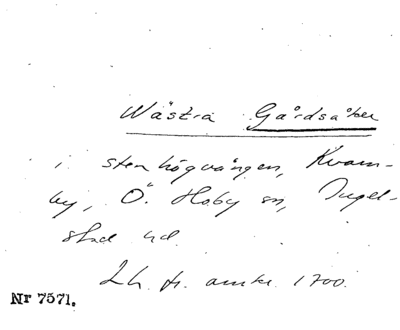 Wästra Gårdsåker
i stenhögvången, Kvarn-
by, Ö. Hoby sn, Ingel-
stad hd.
Lh. fr. omkr. 1700.
Nr 7571.